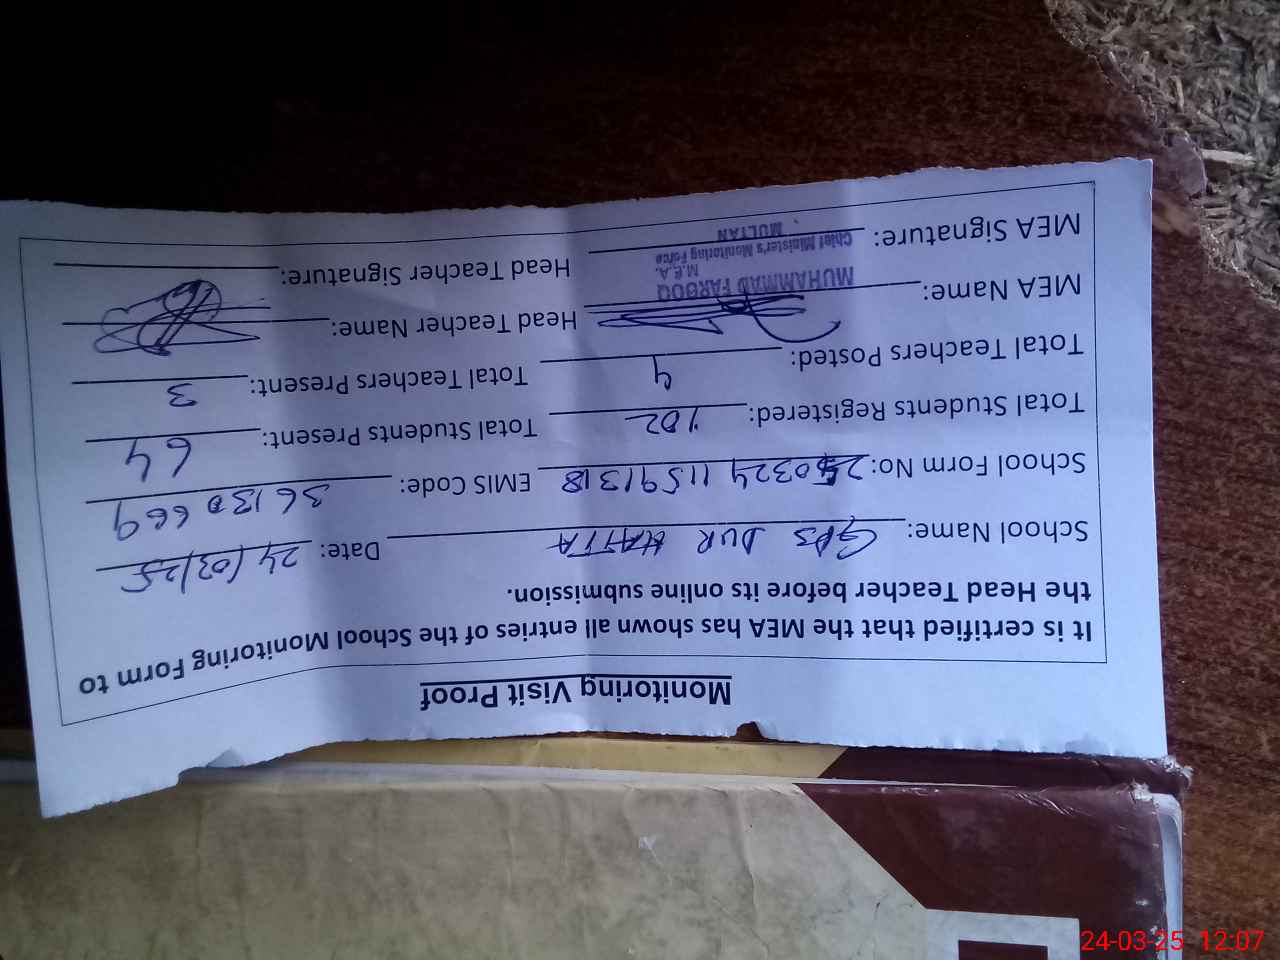 Monitoring Visit Proof
It is certified that the MEA has shown all entries of the School Monitoring Form to
the Head Teacher before its online submission.
School Name: GPS DUR HATTA Date: 24/03/25
School Form No: 250324115913318 EMIS Code: 36130669
Total Students Registered: 102 Total Students Present: 64
Total Teachers Posted: 4 Total Teachers Present: 3
MEA Name: Head Teacher Name:
MUHAMMAD FAROOQ
M.E.A.
Chief Minister's Monitoring Force
MULTAN
MEA Signature: Head Teacher Signature:
24-03-25 12:07